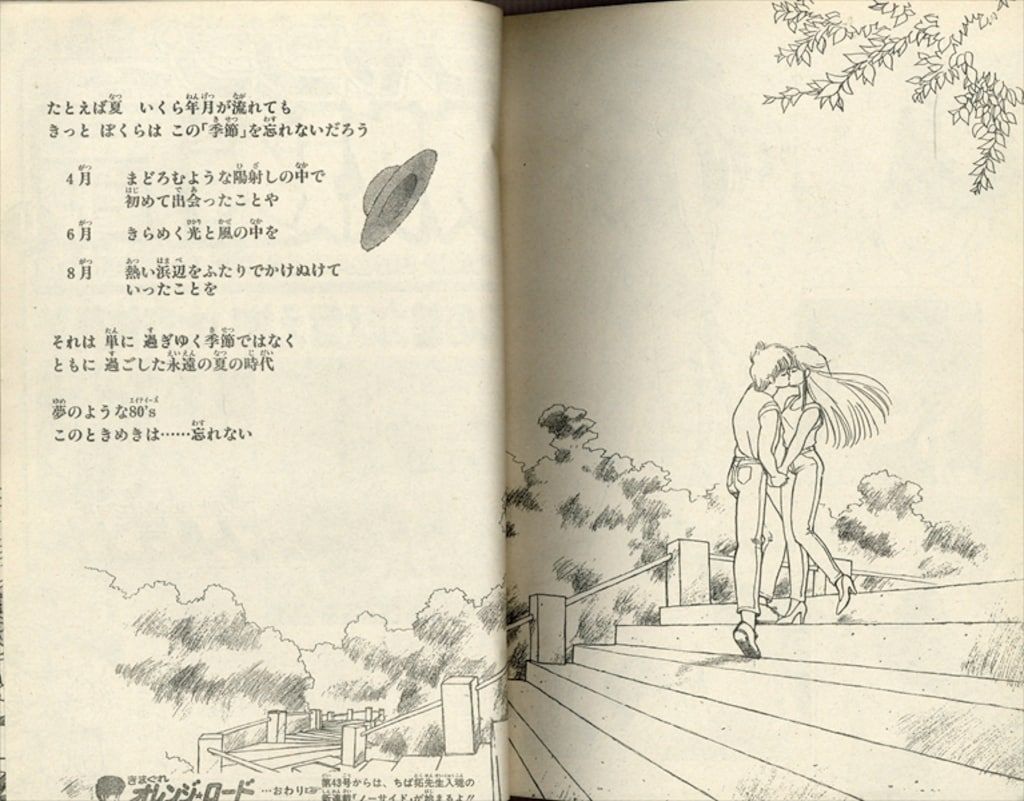 たとえば夏　いくら年月が流れても
きっと ぼくらは この「季節」を忘れないだろう
4月　まどろむような陽射しの中で
初めて出会ったことや
6月　きらめく光と風の中を
8月　熱い浜辺をふたりでかけぬけて
いったことを
それは 単に 過ぎゆく季節ではなく
ともに 過ごした永遠の夏の時代
夢のような80's
このときめきは……忘れない
きまぐれ
オレンジ☆ロード …おわり
第43号からは、ちば拓先生入魂の
新連載「ノーサイド」が始まるよ!!